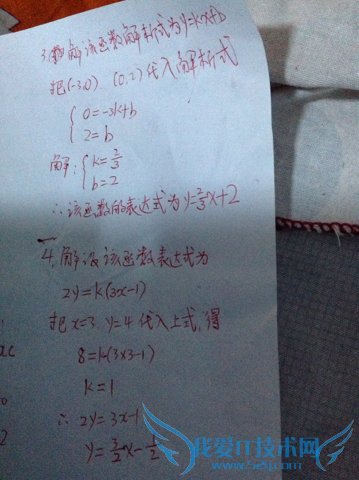 3.解设该函数解析式为y=kx+b
把(-3,0)、(0,2)代入解析式
{0=-3k+b
2=b
解:{k=2/3
b=2
∴该函数的表达式为y=2/3x+2
4.解设该函数表达式为
2y=k(3x-1)
把x=3,y=4代入上式,得
8=k(3×3-1)
k=1
∴2y=3x-1
y=3/2x-1/2
我爱IT技术网